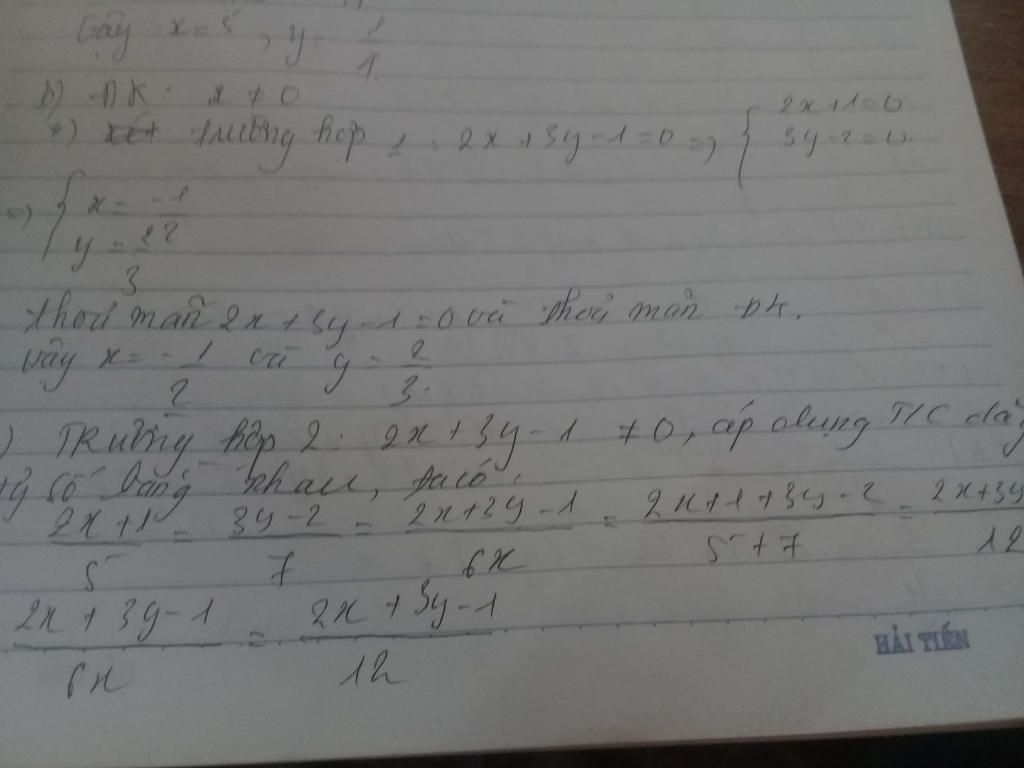 Vậy x = 5, y = 1/1
b) ĐK: x ≠ 0
*) trường hợp 1: 2x + 3y - 1 = 0 => { 2x + 1 = 0
3y - 2 = 0.
=> { x = -1/2
y = 2/3
thoả mãn 2x + 3y - 1 = 0 và thoả mãn ĐK.
vậy x = -1/2 và y = 2/3.
) TRường hợp 2: 2x + 3y - 1 ≠ 0, áp dụng T/C dãy
tỷ số bằng nhau, ta có:
(2x + 1)/5 = (3y - 2)/7 = (2x + 3y - 1)/6x = (2x + 1 + 3y - 2)/(5 + 7) = (2x + 3y/12
(2x + 3y - 1)/6x = (2x + 3y - 1)/12
HẢI TIẾN